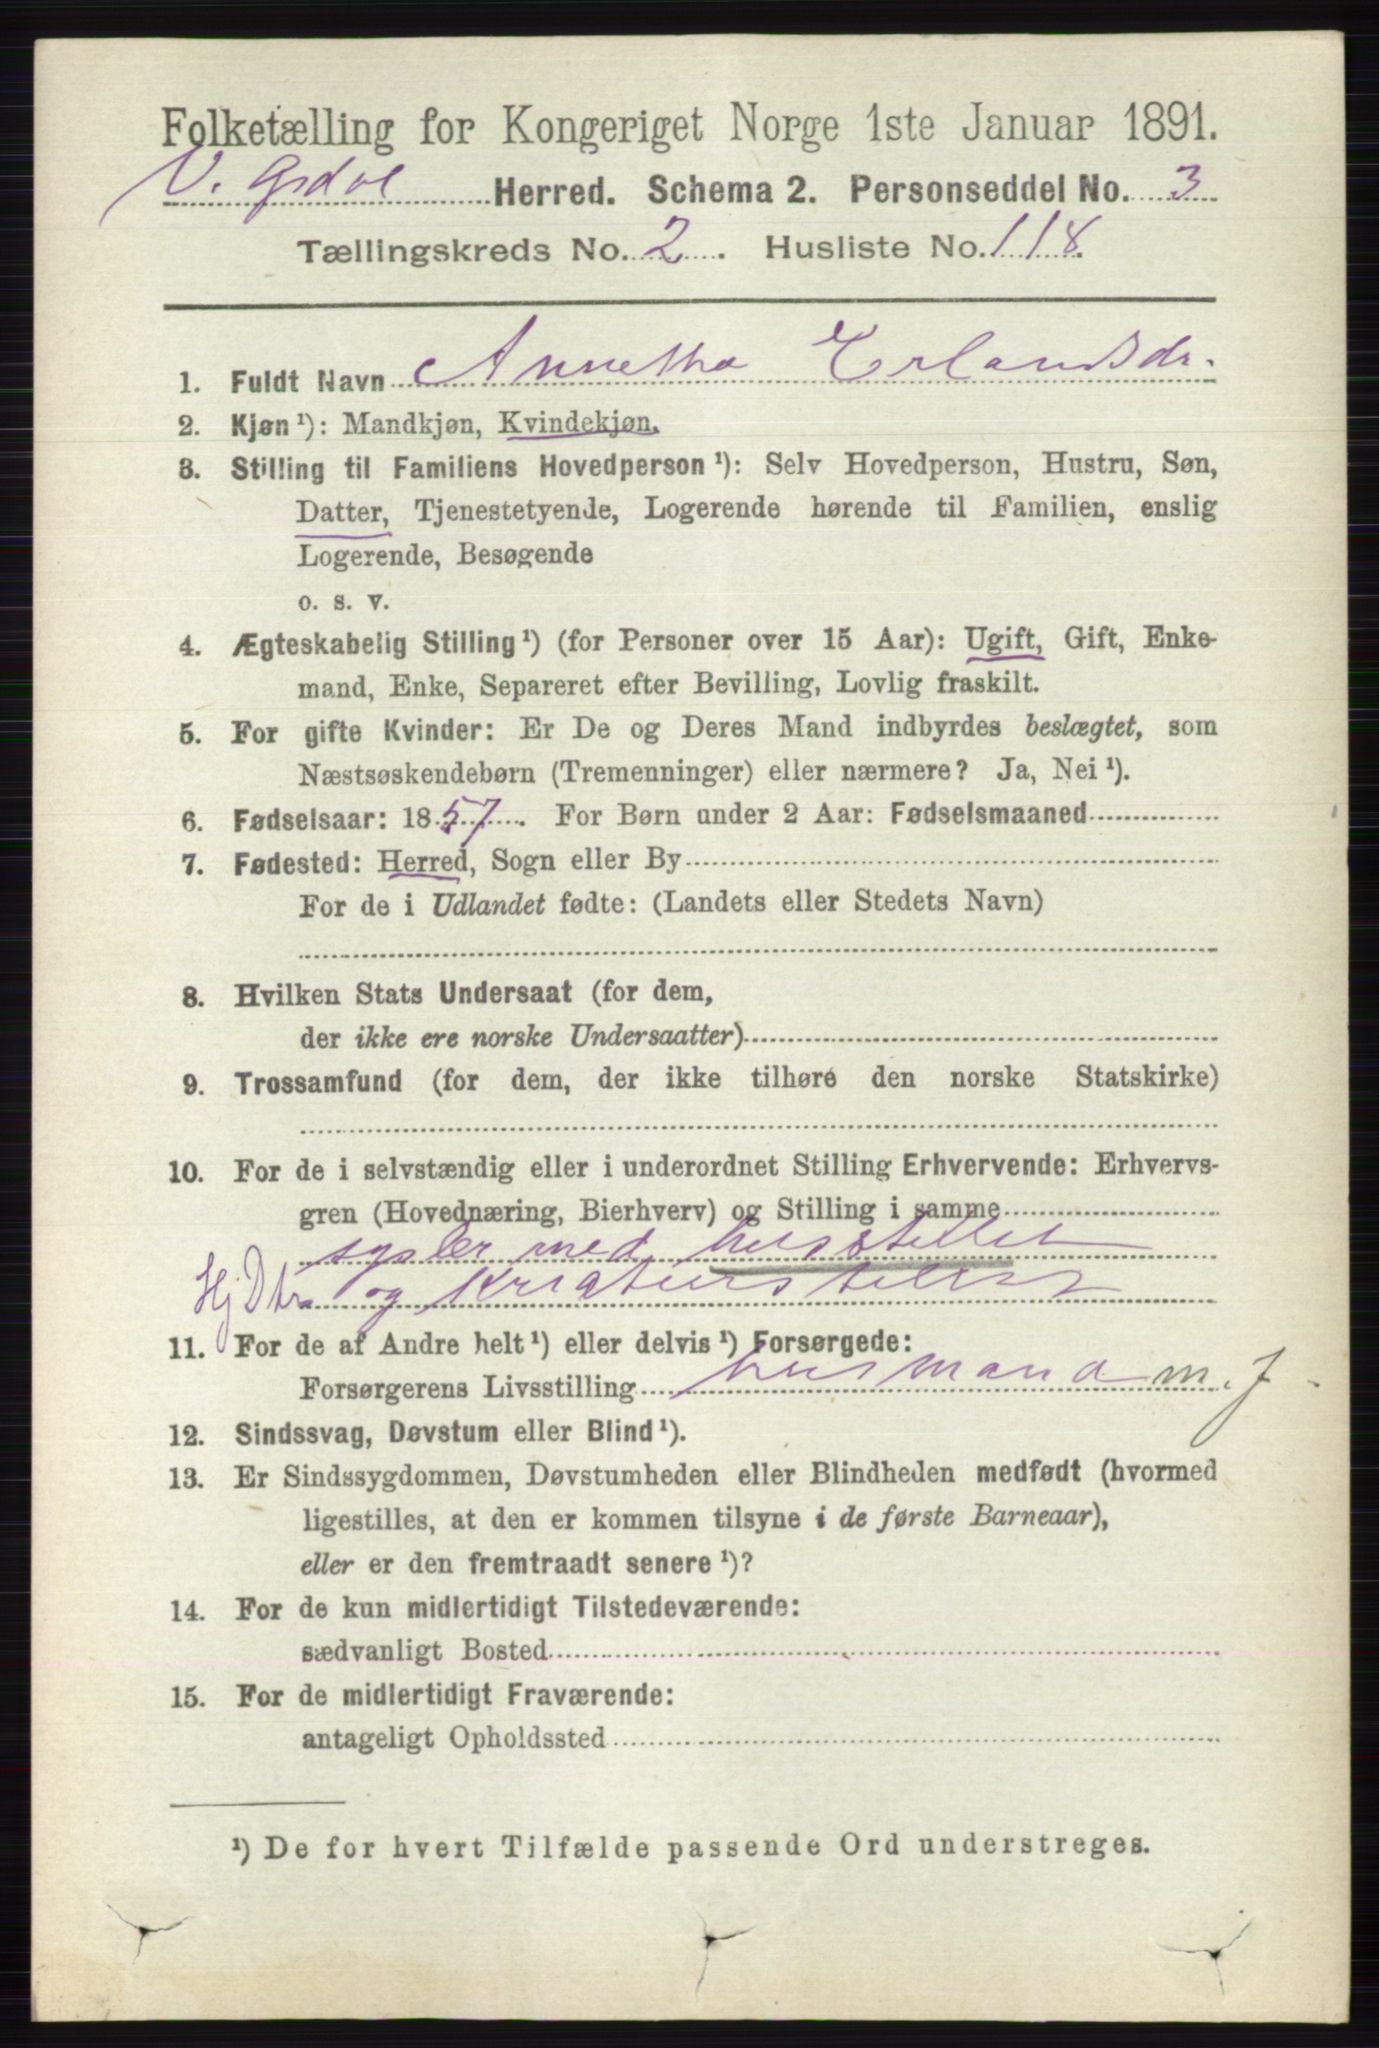 Folketælling for Kongeriget Norge 1ste Januar 1891.
V. Gsdal Herred. Schema 2. Personseddel No. 3
Tællingskreds No. 2. Husliste No. 118.
1. Fuldt Navn Annetha Erlandsdr.
2. Kjøn ¹): Mandkjøn, Kvindekjøn.
3. Stilling til Familiens Hovedperson ¹): Selv Hovedperson, Hustru, Søn,
Datter, Tjenestetyende, Logerende hørende til Familien, enslig
Logerende, Besøgende
o. s. v.
4. Ægteskabelig Stilling ¹) (for Personer over 15 Aar): Ugift, Gift, Enke-
mand, Enke, Separeret efter Bevilling, Lovlig fraskilt.
5. For gifte Kvinder: Er De og Deres Mand indbyrdes beslægtet, som
Næstsøskendebørn (Tremenninger) eller nærmere? Ja, Nei ¹).
6. Fødselsaar: 1857. For Børn under 2 Aar: Fødselsmaaned
7. Fødested: Herred, Sogn eller By
For de i Udlandet fødte: (Landets eller Stedets Navn)
8. Hvilken Stats Undersaat (for dem,
der ikke ere norske Undersaatter)
9. Trossamfund (for dem, der ikke tilhøre den norske Statskirke)
10. For de i selvstændig eller i underordnet Stilling Erhvervende: Erhvervs-
gren (Hovednæring, Bierhverv) og Stilling i samme
sysler med husstellet
Hj Dtr og Kreaturstellet
11. For de af Andre helt ¹) eller delvis ¹) Forsørgede:
Forsørgerens Livsstilling husmand m. J
12. Sindssvag, Døvstum eller Blind ¹).
13. Er Sindssygdommen, Døvstumheden eller Blindheden medfødt (hvormed
ligestilles, at den er kommen tilsyne i de første Barneaar),
eller er den fremtraadt senere ¹)?
14. For de kun midlertidigt Tilstedeværende:
sædvanligt Bosted
15. For de midlertidigt Fraværende:
antageligt Opholdssted
¹) De for hvert Tilfælde passende Ord understreges.